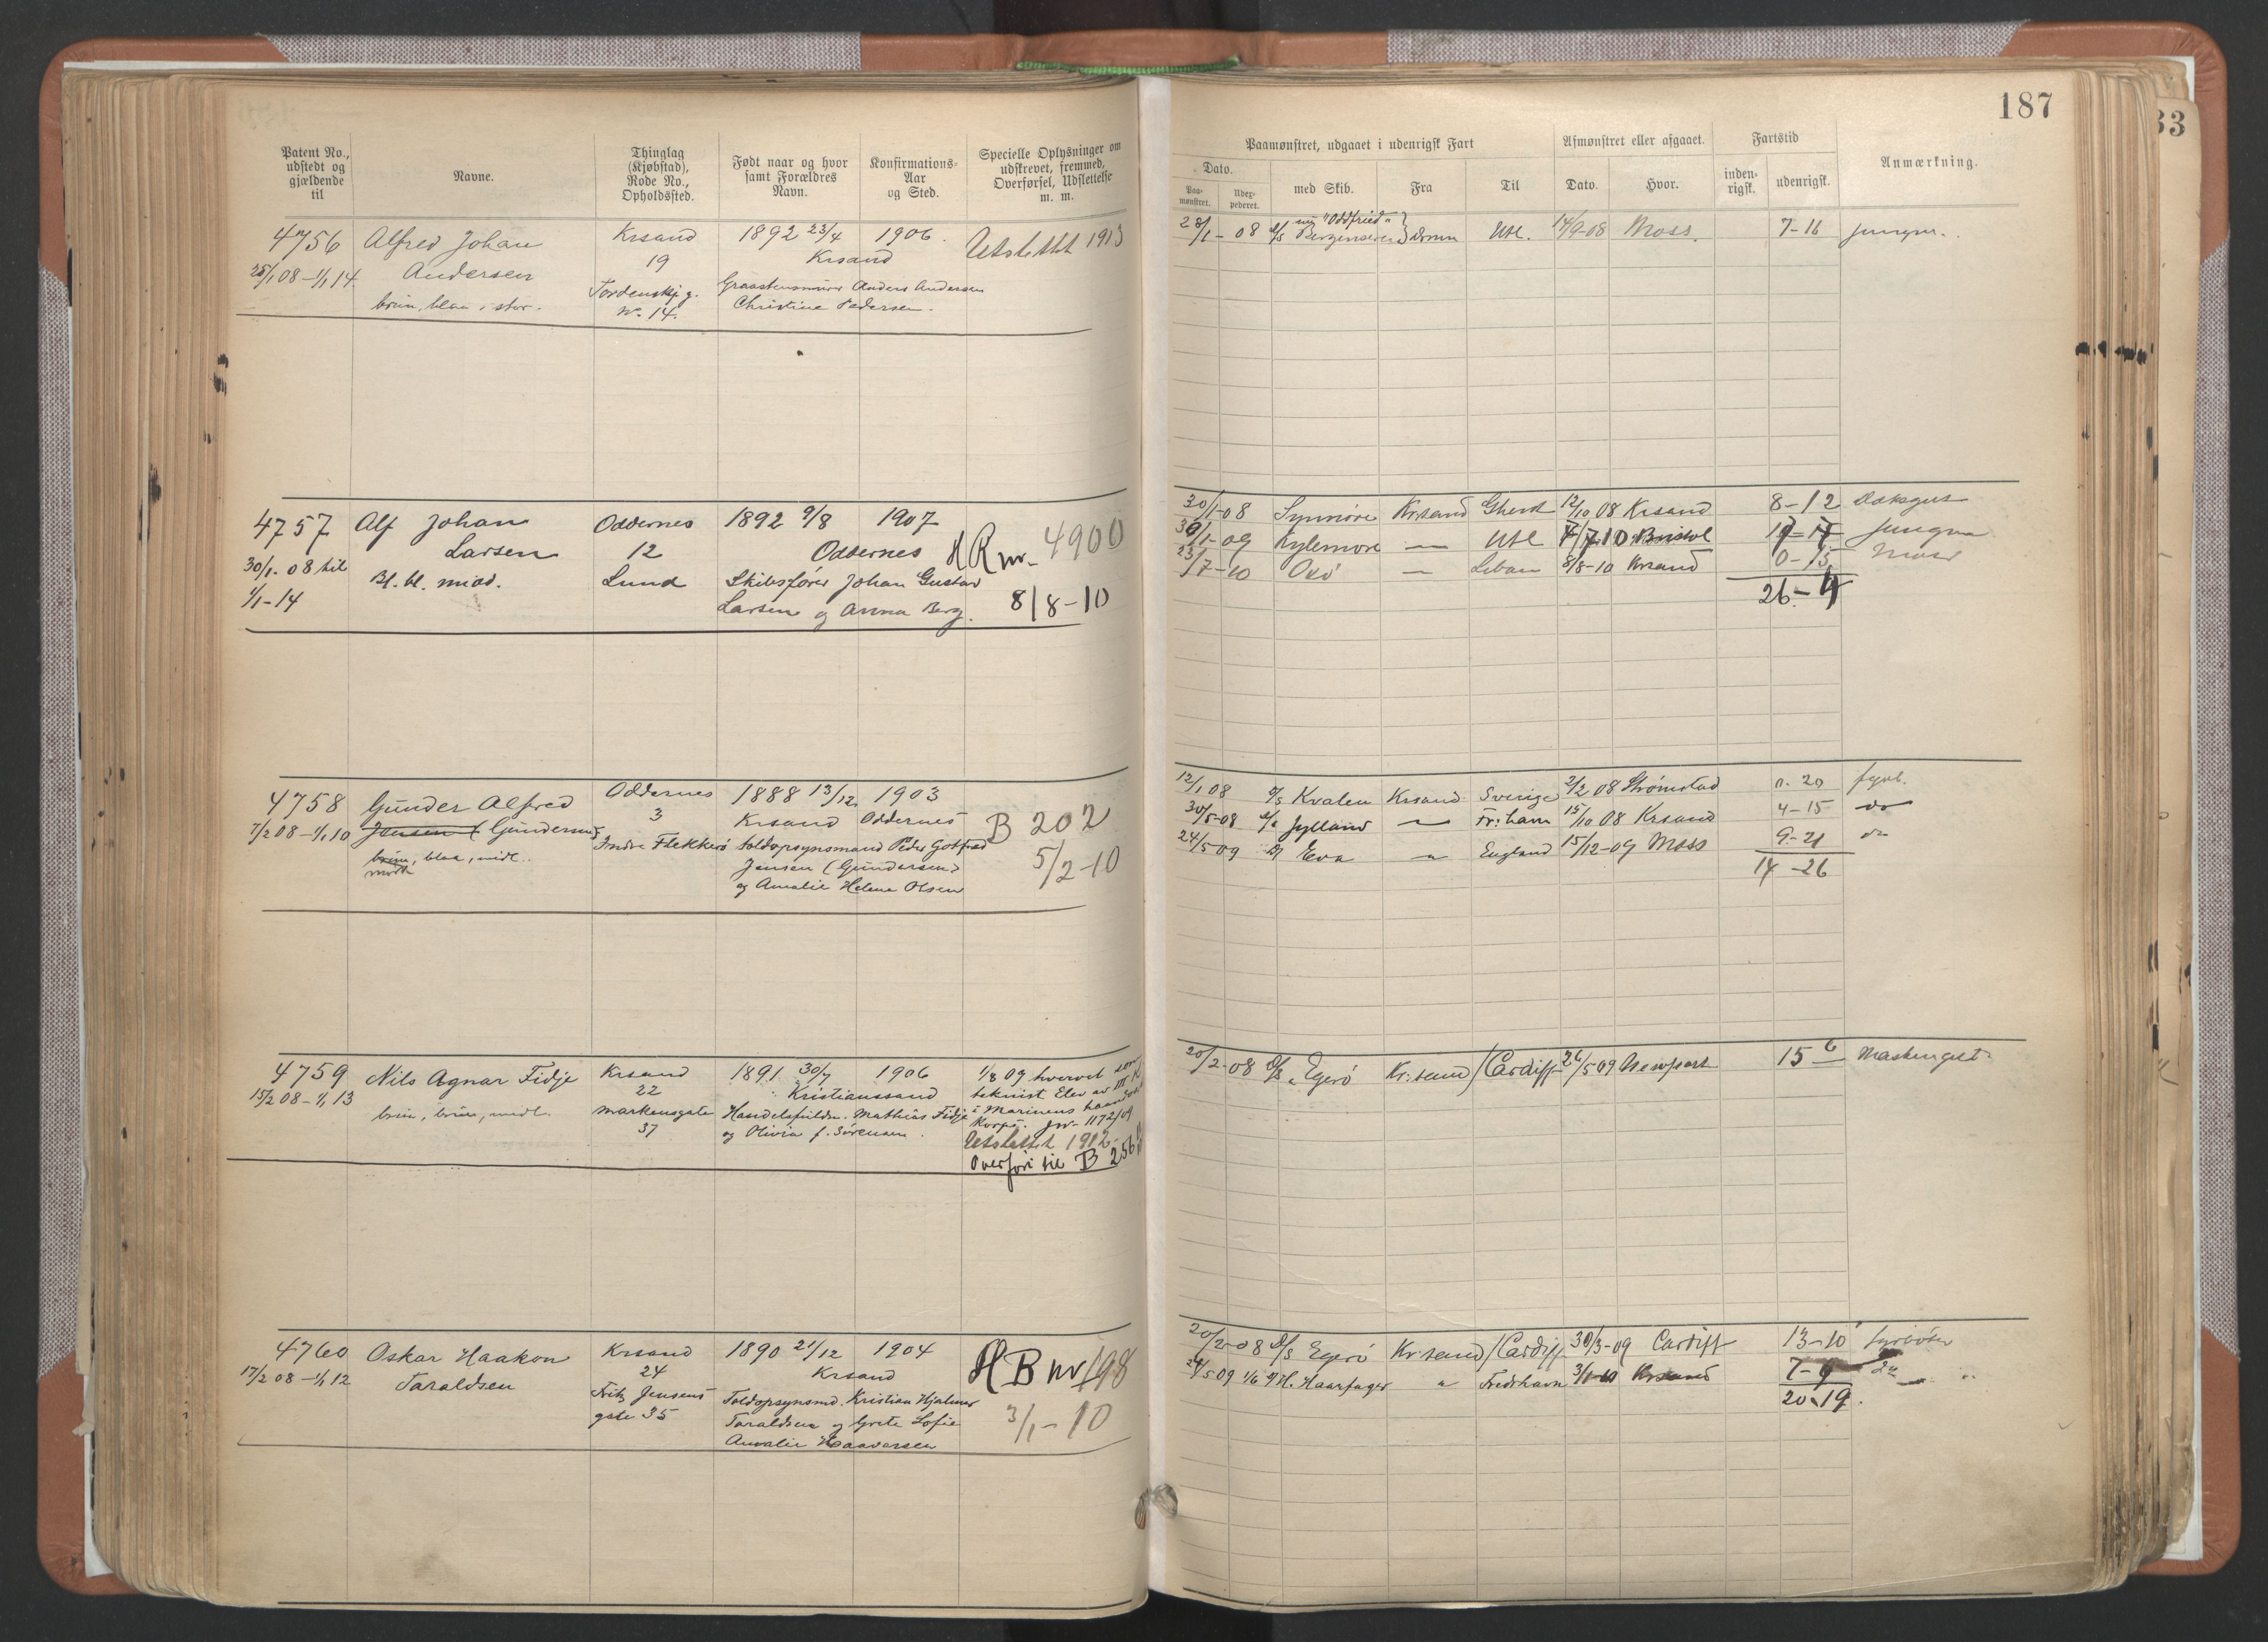 187
33
Patent No., udstedt og gjældende til
Navne.
Thinglag (Kjøbstad), Rode No., Opholdssted.
Født naar og hvor samt Forældres Navn.
Konfirmations-Aar og Sted.
Specielle Oplysninger om udskrevet, fremmed, Overførsel, Udslettelse m. m.
Paamønstret, udgaaet i udenrigsk Fart
Dato.
Paa-mønstret.
Udex-pederet.
med Skib.
Fra
Til
Afmønstret eller afgaaet.
Dato.
Hvor.
Fartstid
inden-rigsk.
udenrigsk.
Anmærkning.
4756 Alfred Johan Krsand 1892 23/4 1906. Utslettet 1913
25/1 08 – 1/1 14 Andersen 19 Krsand
brun, blaa, stor. Tordenskj. g. Graastensmurer Anders Andersen
No. 14. Christine Pedersen.
28/1 – 08 D/S "Oddfried" Bergenseren Utl. 14/9-08 Moss. 7-16 jungm.
4757 Alf Johan Oddernes 1892 9/8 1907
Larsen 12 Oddernes HR nr. 4900
30/1. 08 til Bl. bl. midd. Lund Skibsfører Johan Gustav
1/1-14 Larsen og Anna Berg. 8/8-10
30/1-08 Synmøre Krsand Ghent 12/10 08 Krsand 8-12 Dæksgut
30/1-09 Kylemore — Utl 7/7 10 Bristol 17-17 Jungm
23/7-10 Oxö — Libau 8/8-10 Krsand 0-15
26-4
4758 Gunder Alfred Oddernes 1888 13/12 1903
7/2 08 – 1/1 10 Jensen (Gundersen) 3 Krsand Oddernes B 202
brun, blaa, midl. Indre Flekkerö Toldopsynsmand Peder Gotfred
mørk Jensen (Gundersen) 5/2-10
og Amalie Helene Olsen
12/1 08 D/S Kvalen Krsand Sverige 2/2 08 Strømstad 0.20 fyrb.
30/5-08 D/S Jylland — Fr:havn 15/10 08 Krsand 4-15 do
24/5-09 Eva " England 15/12-09 Moss 9-21 do
14-26
4759 Nils Agnar Fidje Krsand 1891 30/7 1906 1/8 09 hvervet som
15/2 08 – 1/1 13 22 Kristianssand teknist Elev av III Kl
brun, brun, midl. Markensgate Handelsfuldm. Mathias Fidje i Marinens haandv
37 og Olivia f. Sörensen. Korps. jn. 1172/09
Utslettet 1912
Overført til B 256
20/2-08 D/S Egerö Kr:sand Cardiff 26/5 09 Newport 15 6 Maskingut
4760 Oskar Haakon Krsand 1890 21/12 1904 HB nr 198
17/2 08 – 1/1 12 Taraldsen 24 Krsand
Fritz Jensens Toldopsynsmd. Kristian Hjalmar
gate 35 Taraldsen og Grete Sofie 3/1-10
Amalie Haavorsen
20/2-08 D/S Egerö Kr:sand Cardiff 30/3-09 Cardiff 13-10 fyrböter
24/5 09 1/6 H. Haarfager " Fredrhavn 3/1-10 Krsand 7-9 do
20.19.